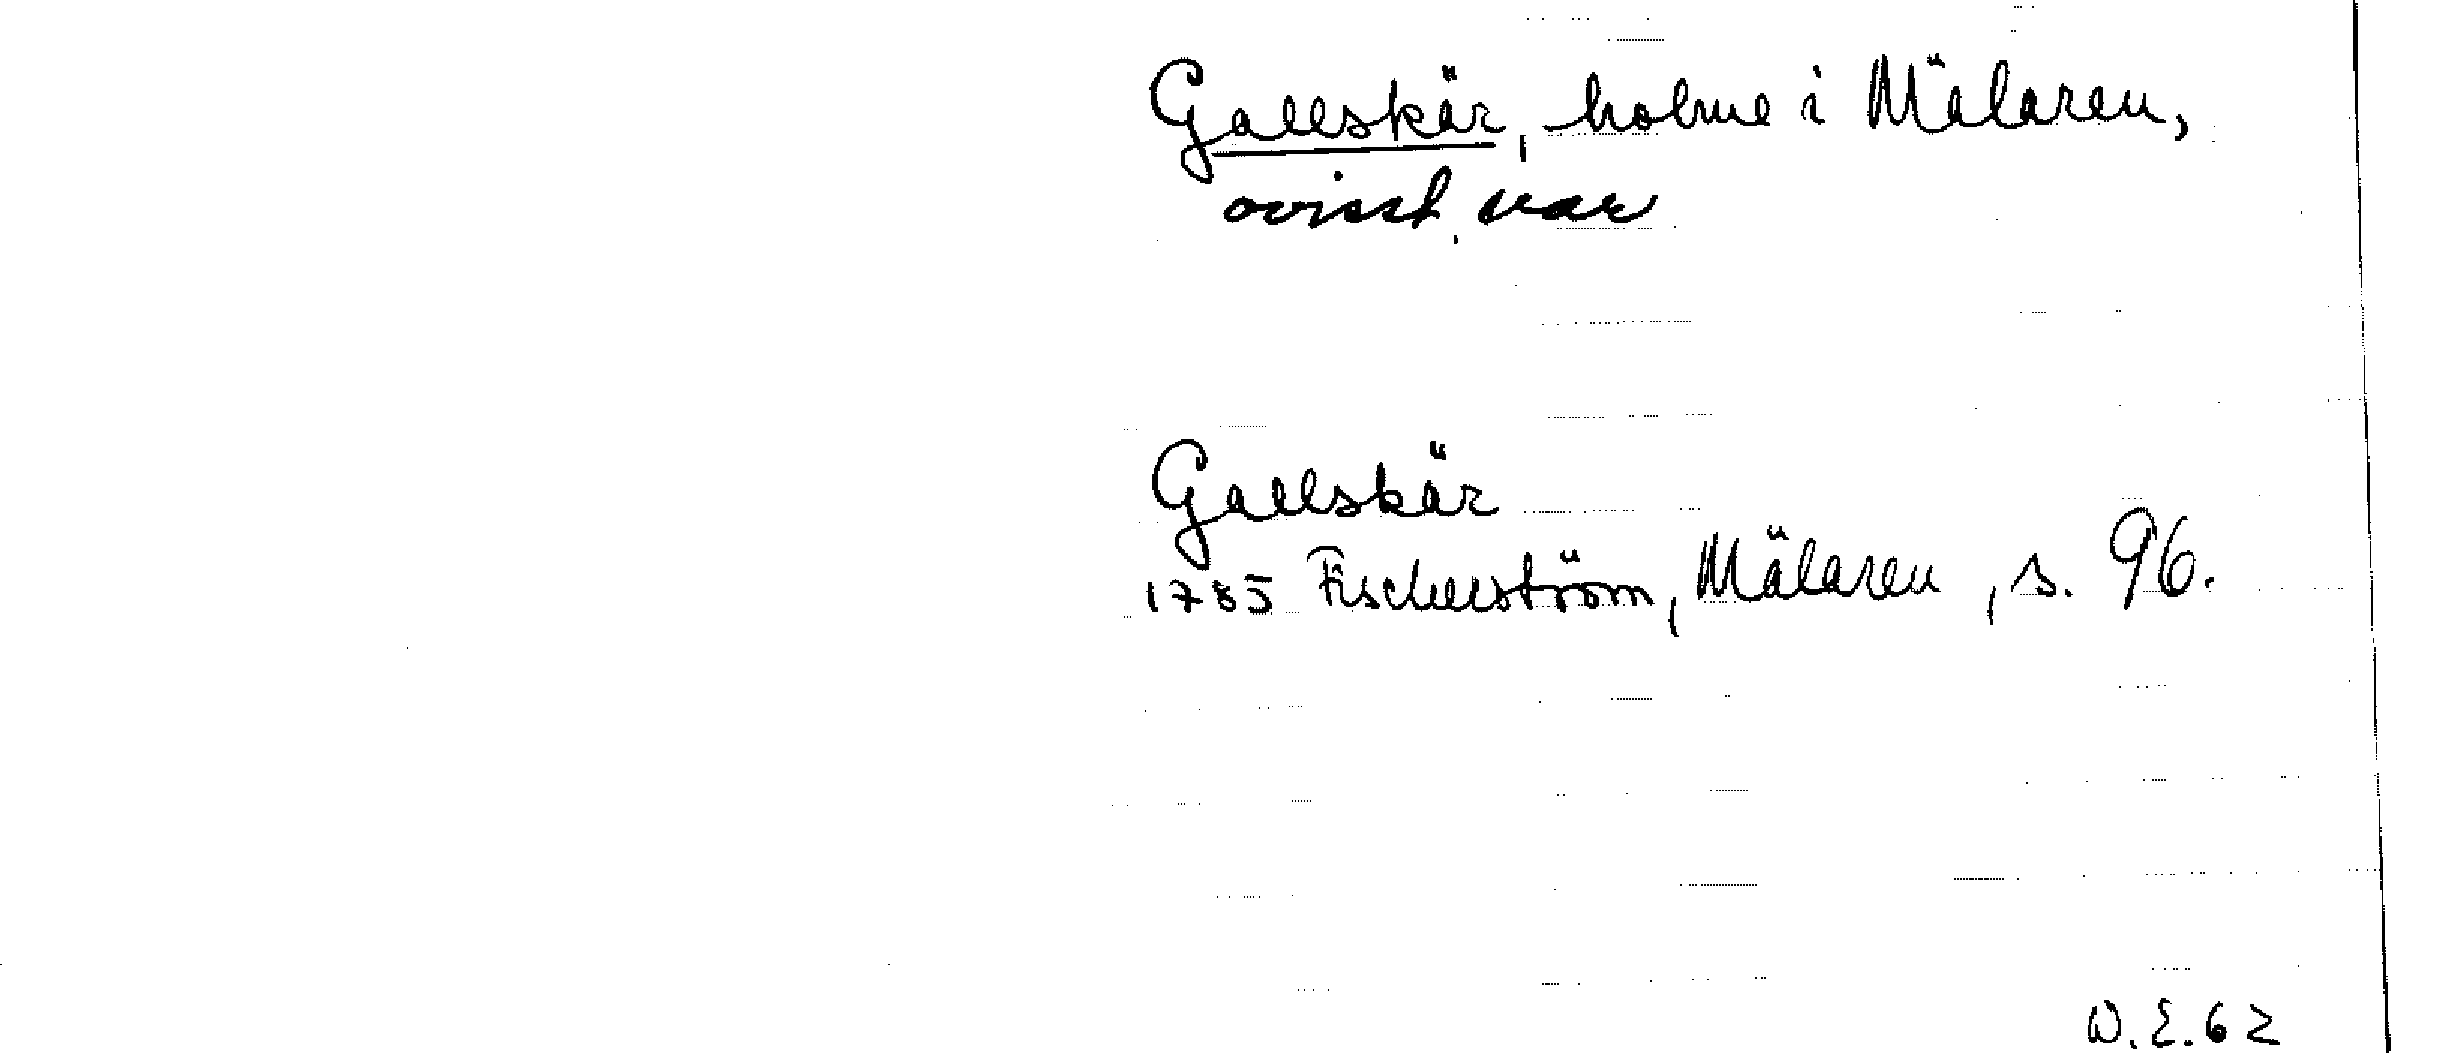 Gallskär, holme i Mälaren,
ovisst var
Gallskär
1785 Fischerström, Mälaren, s. 96.
D.E.62